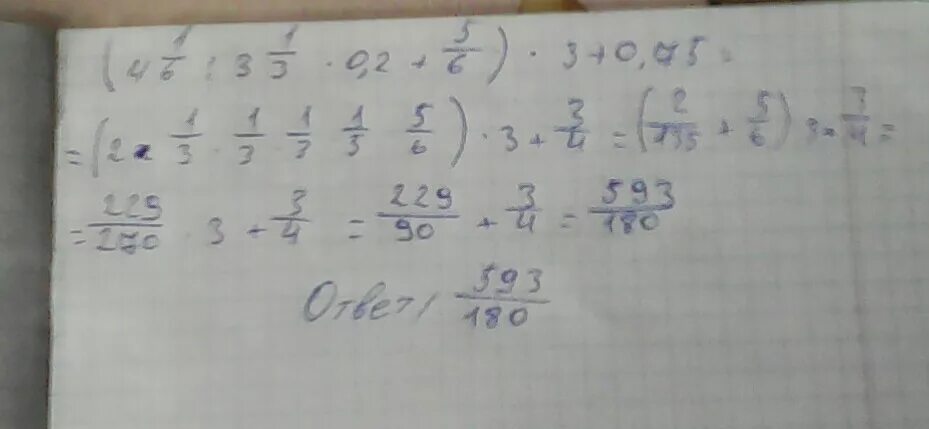 (4 1/6 : 3 1/3 · 0,2 + 5/6) · 3 + 0,75 =
= (2 · 1/3 · 1/3 · 1/3 · 1/5 5/6) · 3 + 3/4 = (2/135 + 5/6) 3 + 3/4 =
= 229/270 · 3 + 3/4 = 229/90 + 3/4 = 593/180
Ответ: 593/180